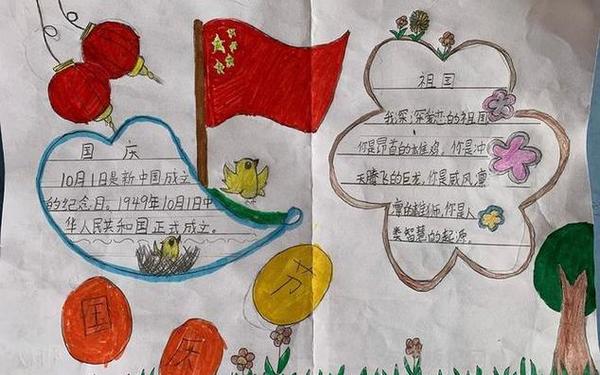 国 庆
10月1日是新中国成立
的纪念日。1949年10月1日中
华人民共和国正式成立。
祖国
我深深爱恋的祖国
你是昂首的雄鸡,你是冲
天腾飞的巨龙,你是威风凛
凛的雄狮,你是人
类智慧的起源。
国
庆
节